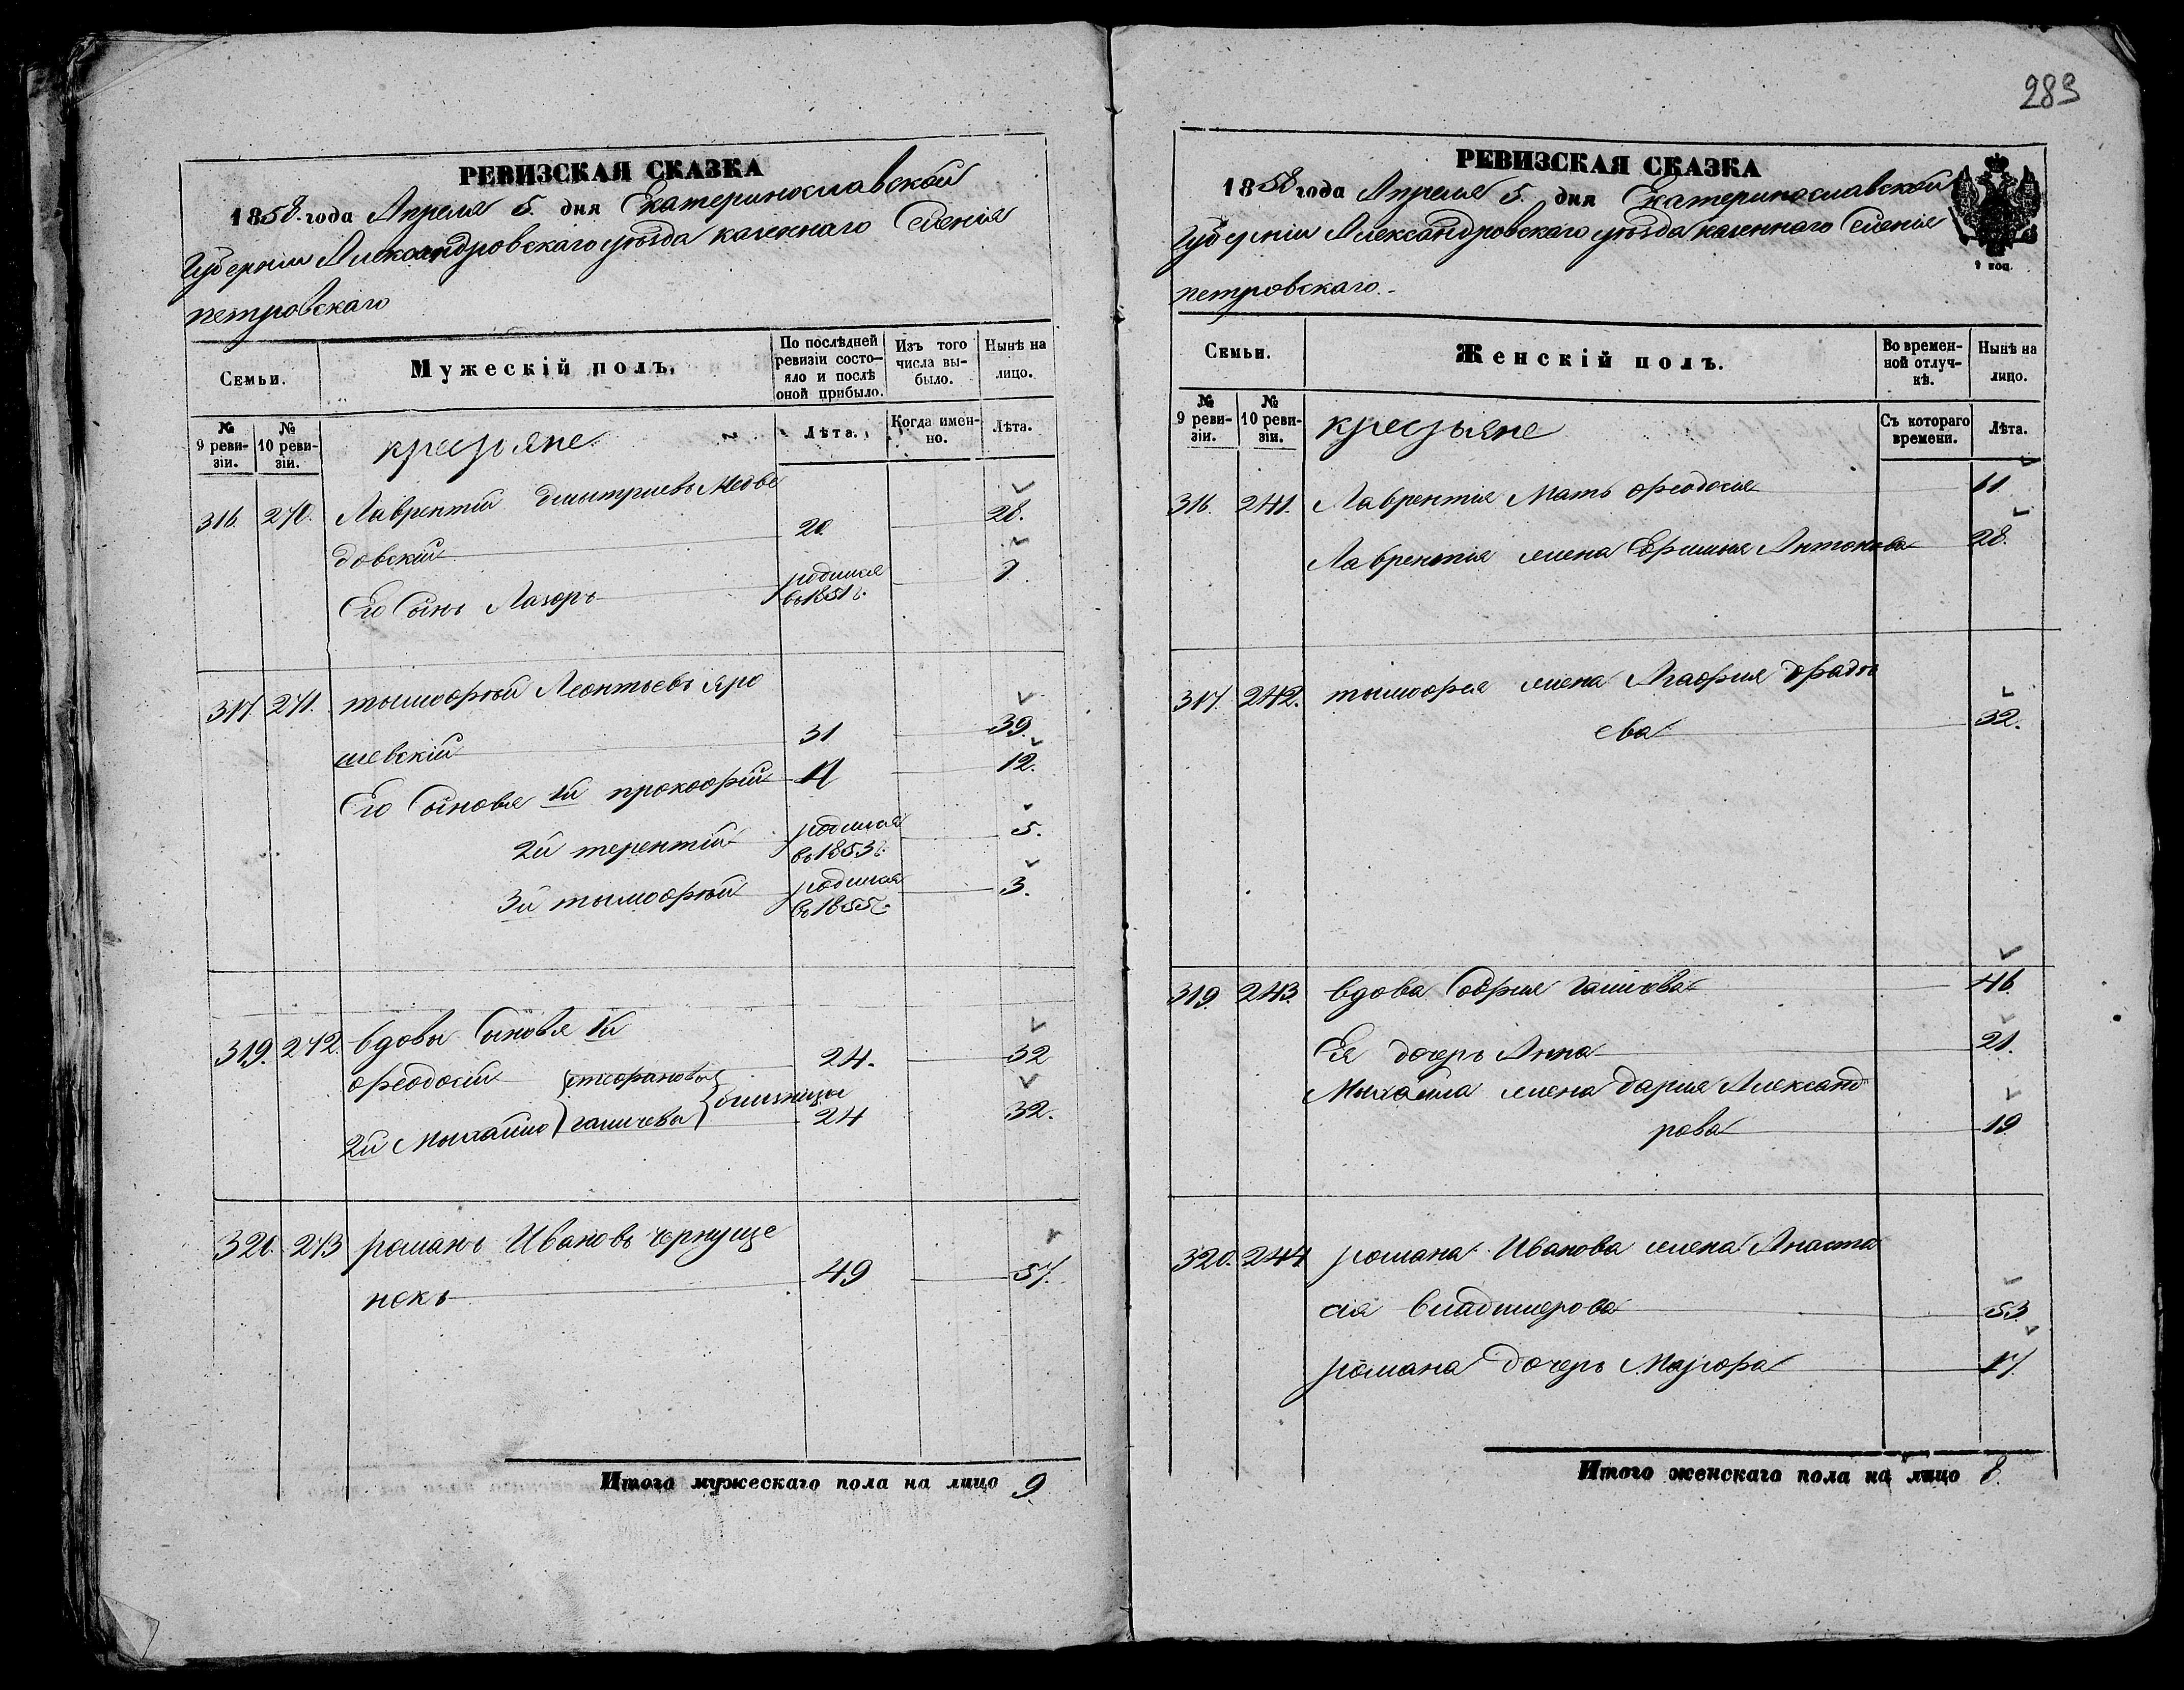 289
РЕВИЗСКАЯ СКАЗКА
1858 года Апреля 5. дня Екатеринославской
Губернии Александровскаго уѣзда казеннаго Селенія
петровскаго
Семьи.
Мужескій полъ.
По послѣдней ревизіи состояло и послѣ оной прибыло.
Изъ того числа выбыло.
Нынѣ на лицо.
№ 9 ревизіи.
№ 10 ревизіи.
крестьяне
Лѣта.
Когда именно.
Лѣта.
316. 240. Лаврентій Дмытріевъ Медве
довскій 20. 28.
Его Сынъ Лазорь родился въ 1851 г. 7
317 241. тымофѣй Леонтьевъ яро
шевскій 31 39.
Его Сыновья 1й прокофій 4 12.
2й терентій родился въ 1853 г. 5.
3й тымофѣй родился въ 1855 г. 3.
319. 242. вдовы Сыновья 1й
Феодосій стефановы 24. 32
2й Мыхайло близнецы 24 32.
320. 243 романъ Ивановъ чернуще
нокъ 49 57.
Итого мужескаго пола на лицо 9.
РЕВИЗСКАЯ СКАЗКА
1858 года Апреля 5. дня Екатеринославской
Губерніи Александровскаго уѣзда казеннаго Селенія
петровскаго.
9 коп.
Семьи.
Женскій полъ.
Во временной отлучкѣ.
Нынѣ на лицо.
№ 9 ревизіи.
№ 10 ревизіи.
крестьяне
Съ котораго времени.
Лѣта.
316. 241. Лаврентія Мать Феодосія
Лаврентія жена Ефимія Антонова 28.
317. 242. тымофея жена Агафия Фадѣ
ева 32.
319 243. вдова София 46.
Ея дочерь Анна 21.
Мыхайла жена Дария Александ
рова 19
320. 244 романа Иванова жена Анаста
сія владимерова 53
романа дочерь Марфа 17.
Итого женскаго пола на лицо 8.